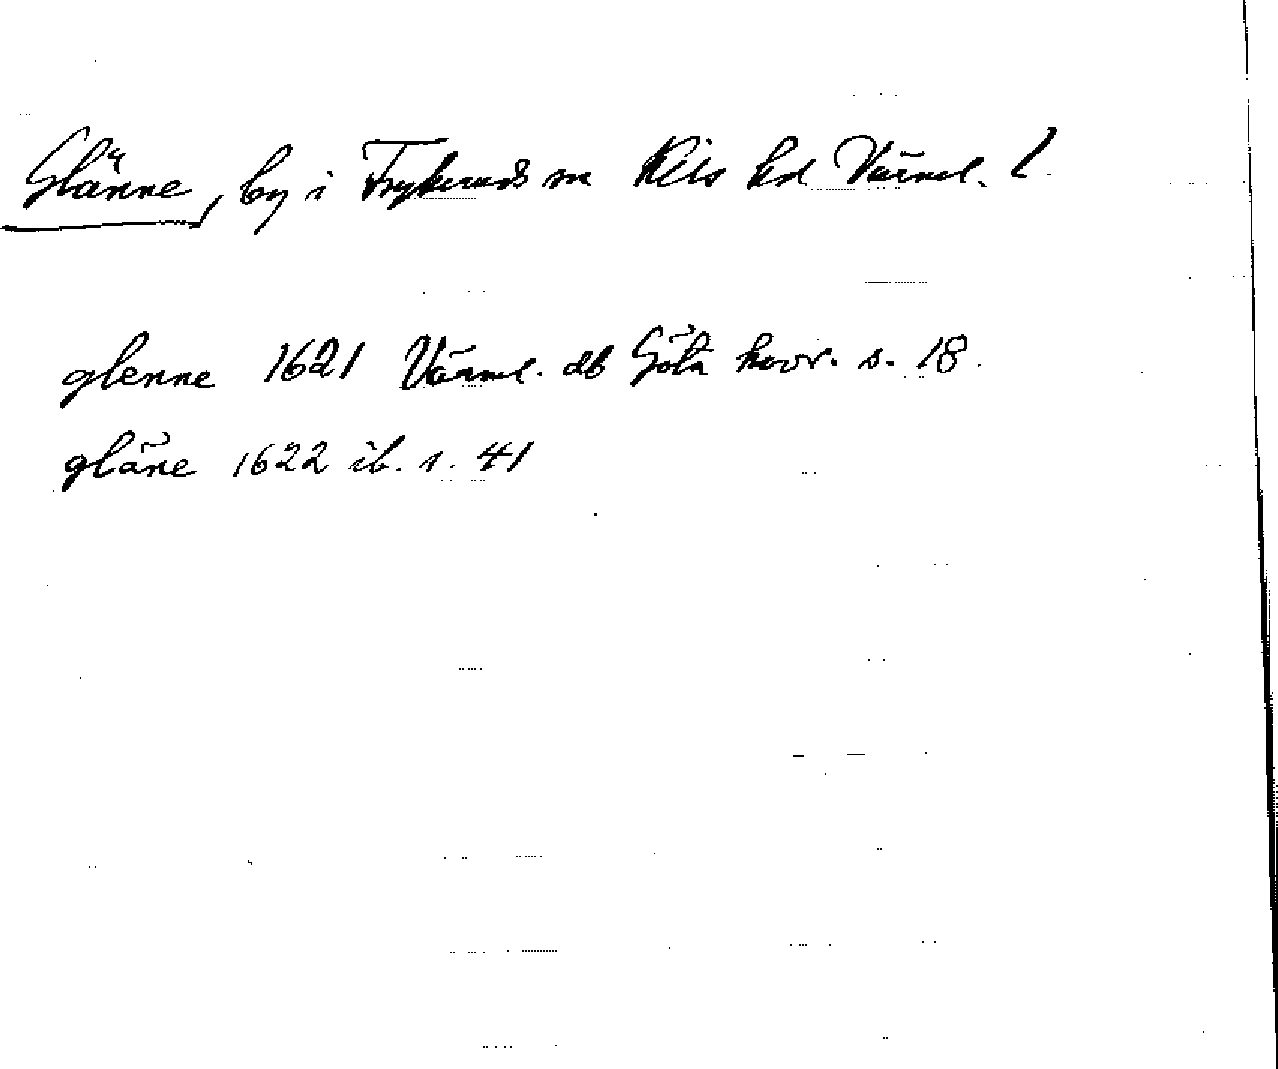 Glänne, by i Frykeruds sn Kils hd Värml. l
glenne 1621 Värml. db Göta hovr. s. 18.
gläne 1622 ib. s. 41